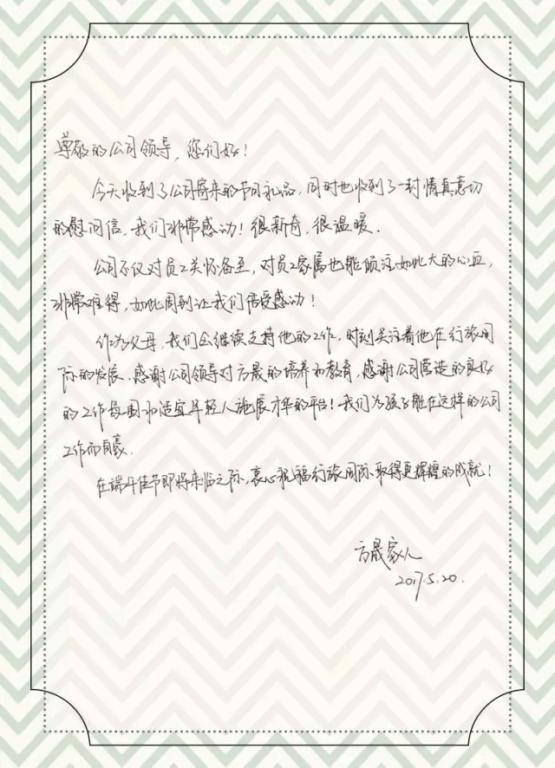 尊敬的公司领导，您们好！
今天收到了公司寄来的节日礼品，同时也收到了一封情真意切
的慰问信，我们非常感动！很新奇，很温暖．
公司不仅对员工关怀备至，对员工家属也能倾注如此大的心血，
非常难得，如此周到让我们倍受感动！
作为父母，我们会继续支持他的工作，时刻关注着他在行旅国
际的发展．感谢公司领导对方晟的培养和教育，感谢公司营造的良好
的工作氛围和适宜年轻人施展才华的平台！我们为孩子能在这样的公司
工作而自豪．
在端午佳节即将来临之际，衷心祝福行旅国际取得更辉煌的成就！
方晟家人
2017.5.20.